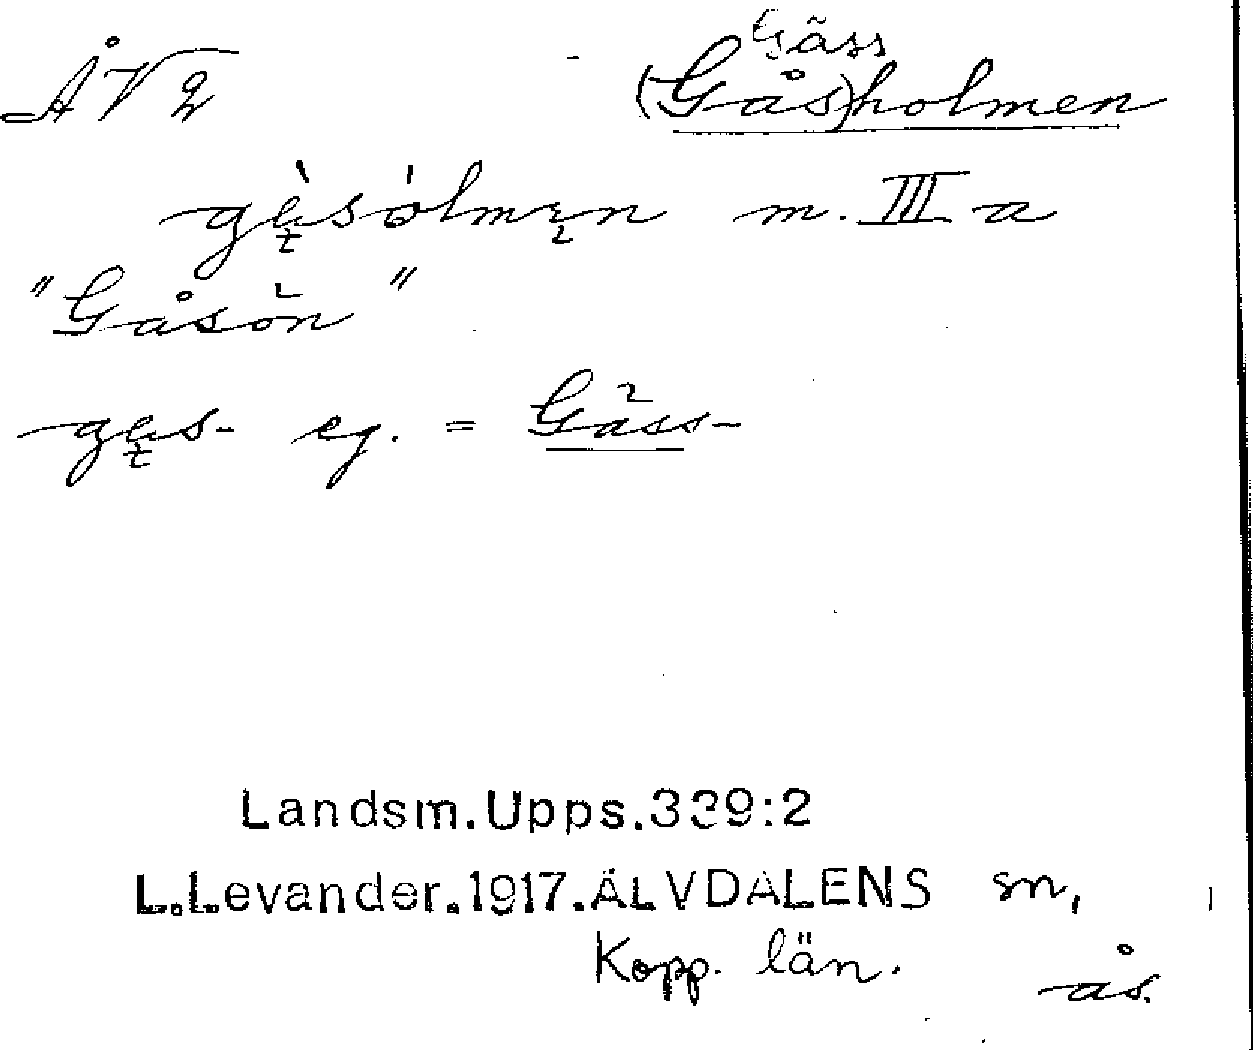 ÅV2
Gäss
(Gås)holmen
m. III a
"Gåsön"
eg. = Gäss-
Landsm.Upps.339:2
L.Levander.1917.ÄLVDALENS sn,
Kopp. län.
ås.